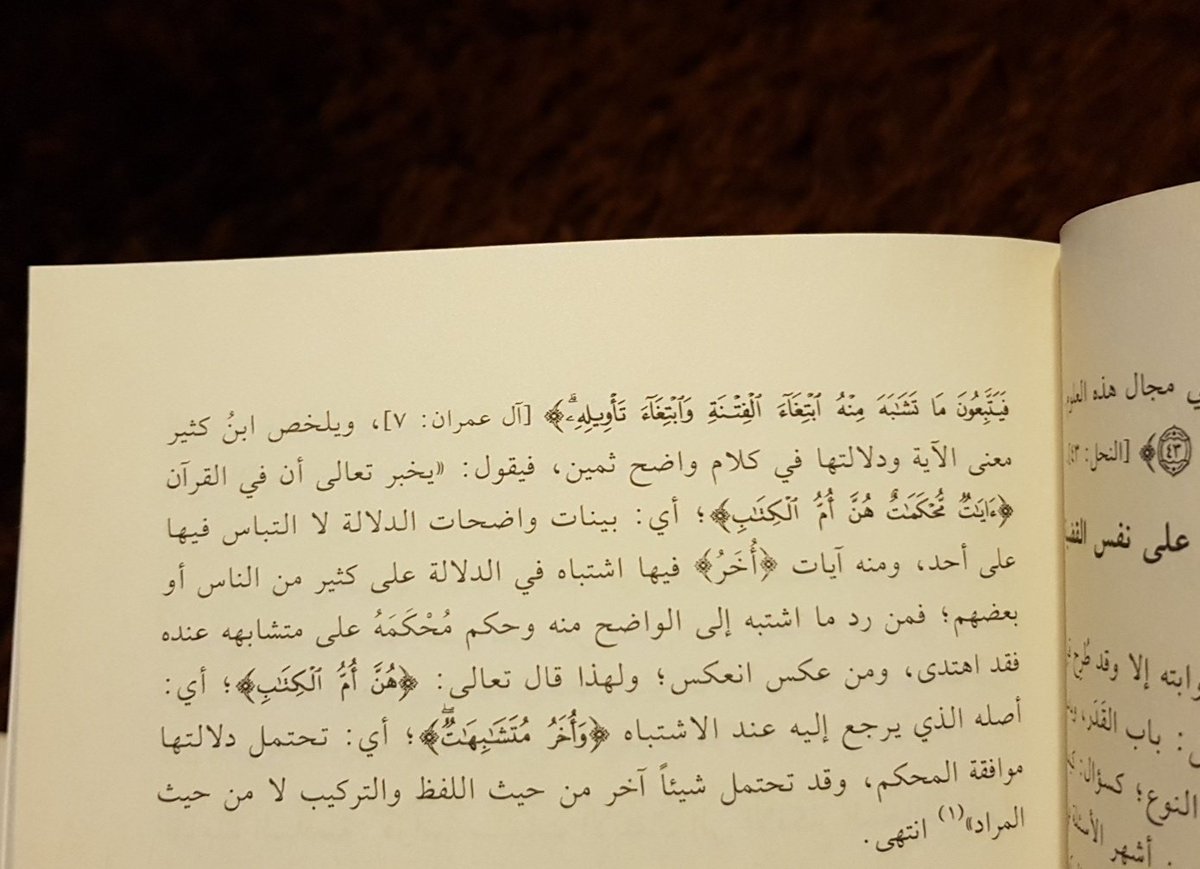 فَيَتَّبِعُونَ مَا تَشَٰبَهَ مِنْهُ ٱبْتِغَآءَ ٱلْفِتْنَةِ وَٱبْتِغَآءَ تَأْوِيلِهِۦۗ﴾ [آل عمران: ٧]، ويلخص ابنُ كثير
معنى الآية ودلالتها في كلام واضح ثمين، فيقول: «يخبر تعالى أن في القرآن
﴿ءَايَٰتٌ مُّحْكَمَٰتٌ هُنَّ أُمُّ ٱلْكِتَٰبِ﴾؛ أي: بينات واضحات الدلالة لا التباس فيها
على أحد، ومنه آيات ﴿أُخَرُ﴾ فيها اشتباه في الدلالة على كثير من الناس أو
بعضهم؛ فمن رد ما اشتبه إلى الواضح منه وحكم مُحْكَمَهُ على متشابهه عنده
فقد اهتدى، ومن عكس انعكس؛ ولهذا قال تعالى: ﴿هُنَّ أُمُّ ٱلْكِتَٰبِ﴾؛ أي:
أصله الذي يرجع إليه عند الاشتباه ﴿وَأُخَرُ مُتَشَٰبِهَٰتٌۖ﴾؛ أي: تحتمل دلالتها
موافقة المحكم، وقد تحتمل شيئاً آخر من حيث اللفظ والتركيب لا من حيث
المراد»(١) انتهى.
مجال هذه
٤٣﴾ [النحل: ٤٣]
على نفس
إلا وقد طُرح
: باب القَدَر،
النوع؛ كسؤال:
. أشهر